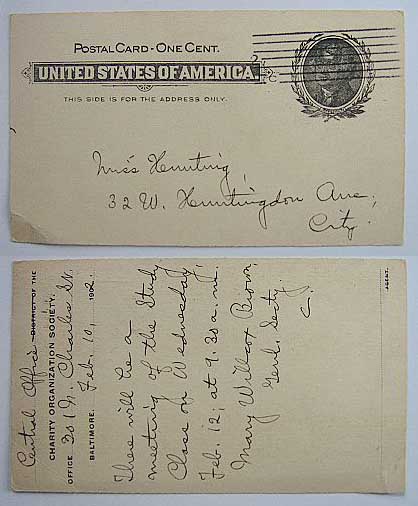 POSTAL CARD - ONE CENT.
UNITED STATES OF AMERICA.
THIS SIDE IS FOR THE ADDRESS ONLY.
Miss Hunting,
32 W. Huntingdon Ave,
City.
Central Office DISTRICT OF THE
CHARITY ORGANIZATION SOCIETY.
OFFICE 301 N. Charles St.
BALTIMORE, Feb. 10, 1902.
There will be a
meeting of the Study
Class on Wednesday,
Feb. 12, at 9.30 a.m.
Mary Willcox Brown,
Genl. Secty.
C.
AGENT.